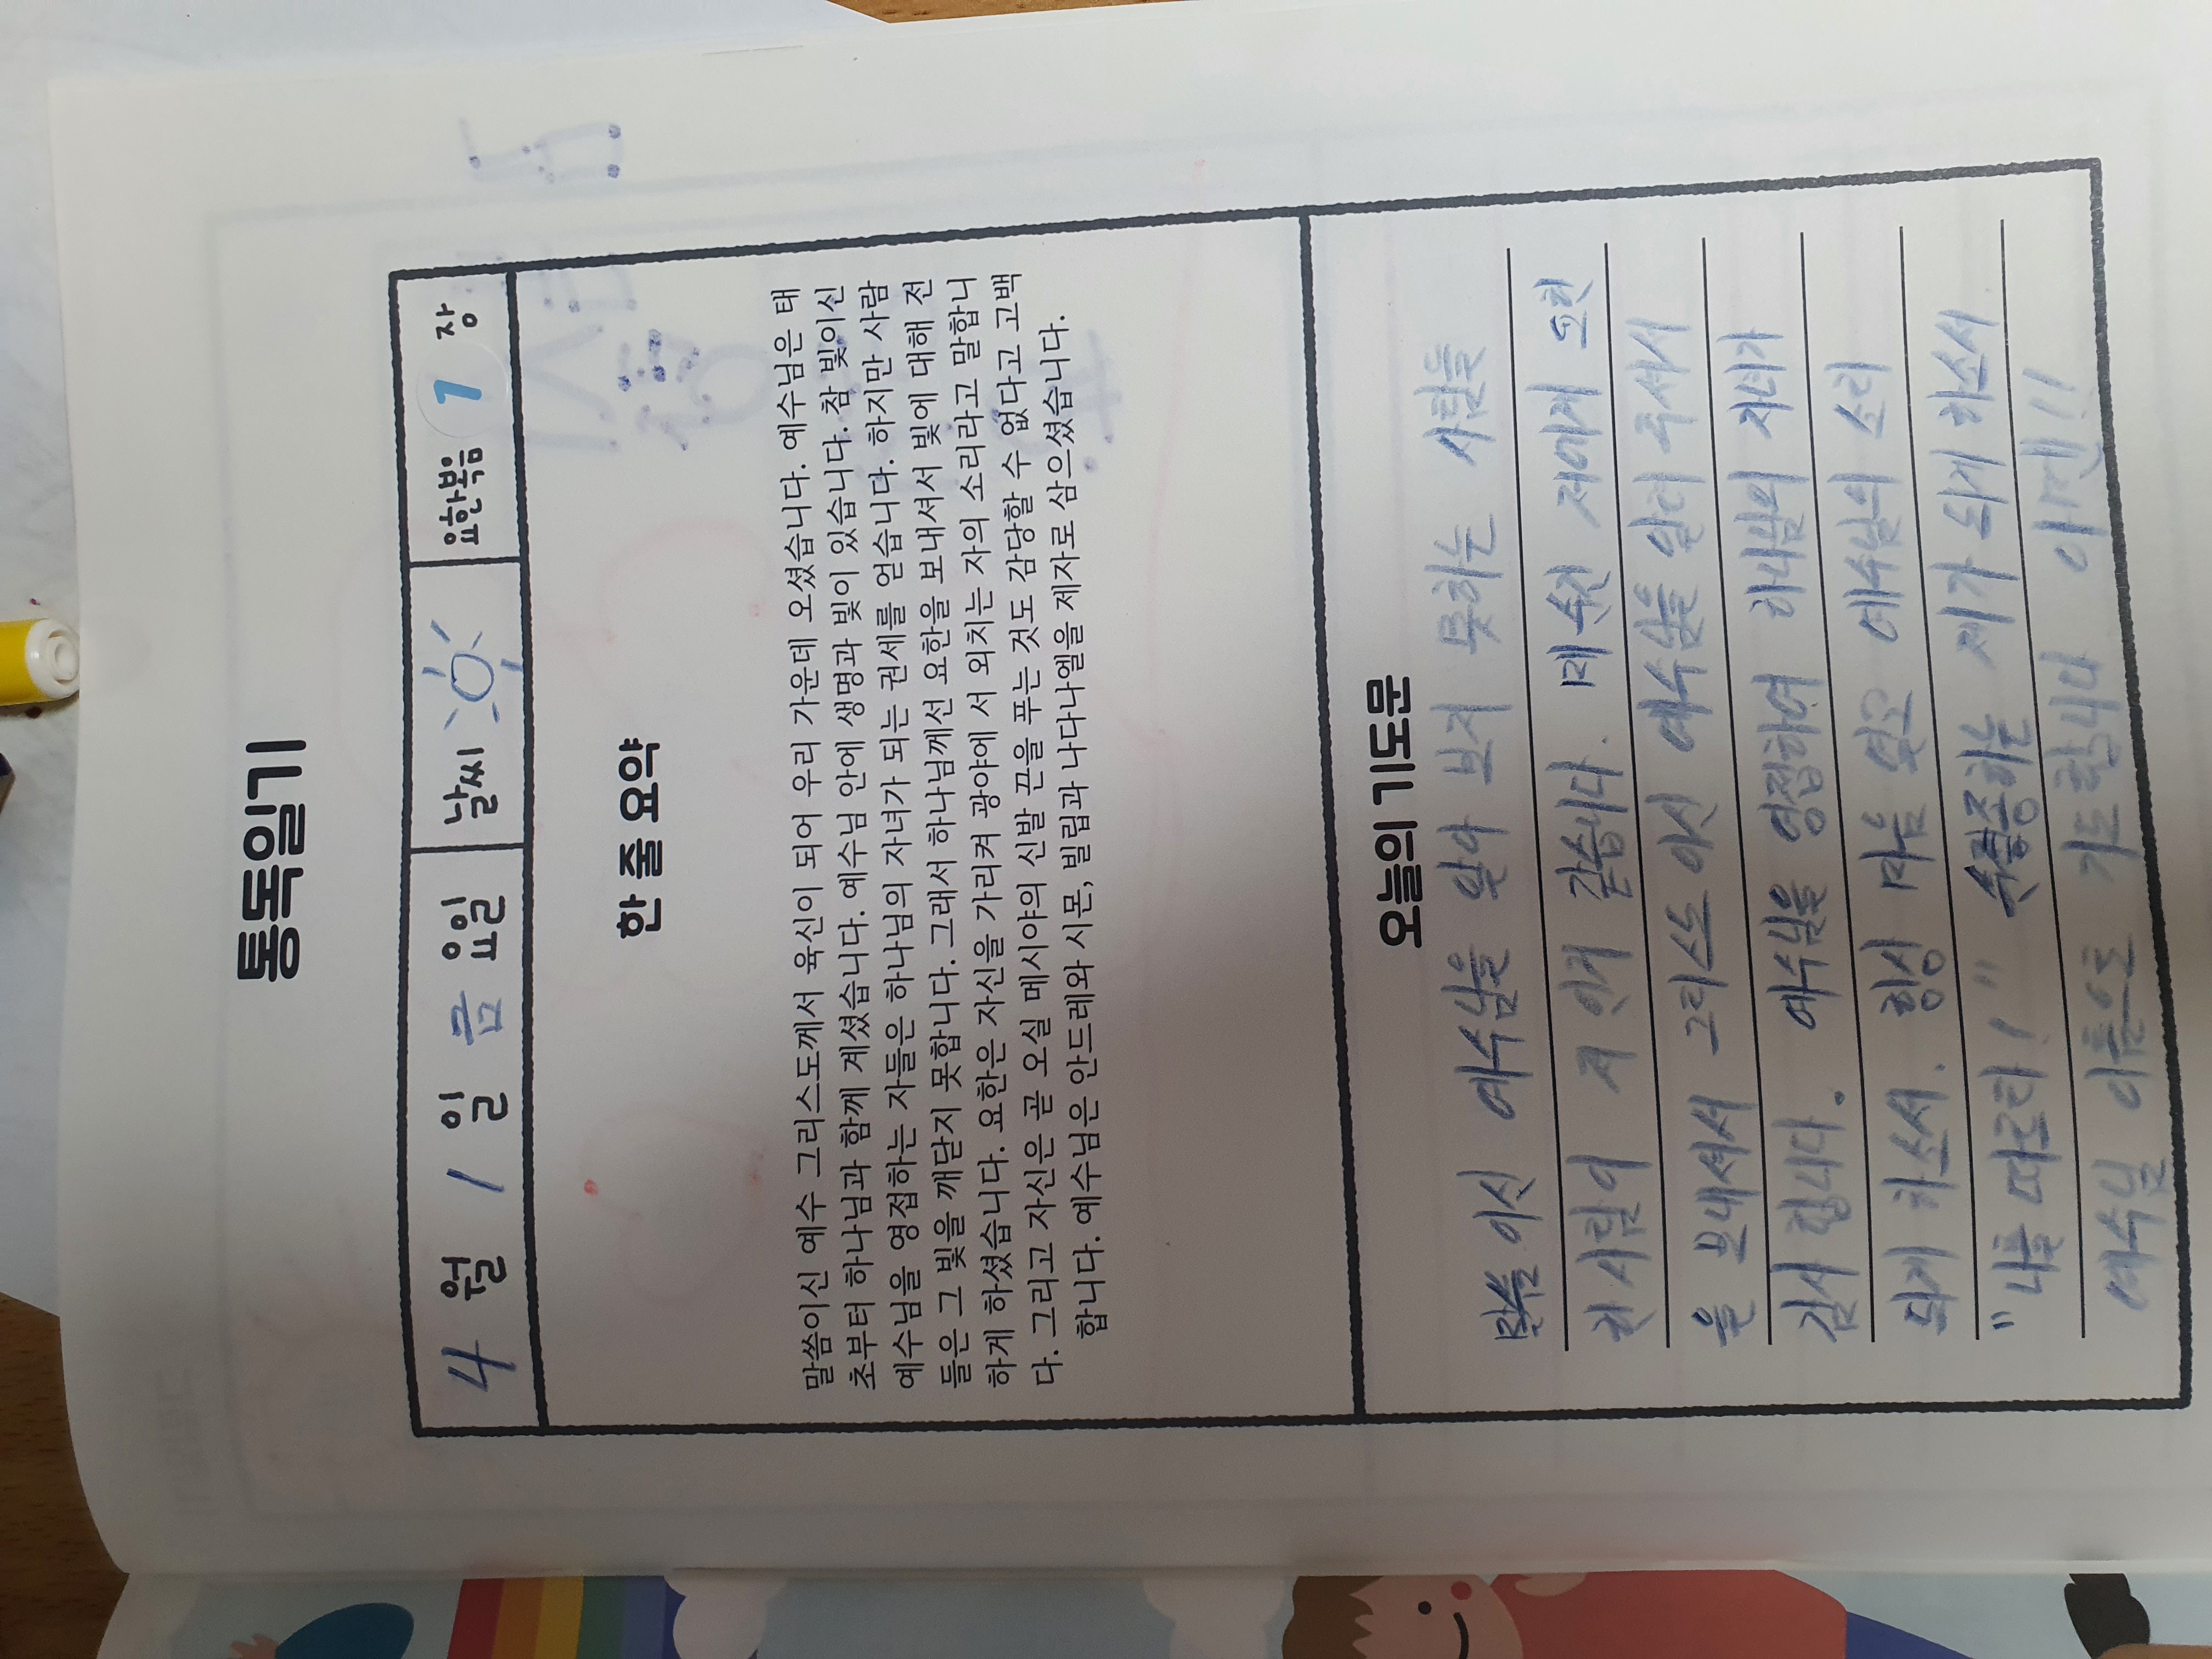 통독일기
4 월 1 일 금 요일 날씨 요한복음 1 장
한 줄 요약
말씀이신 예수 그리스도께서 육신이 되어 우리 가운데 오셨습니다. 예수님은 태
초부터 하나님과 함께 계셨습니다. 예수님 안에 생명과 빛이 있습니다. 참 빛이신
예수님을 영접하는 자들은 하나님의 자녀가 되는 권세를 얻습니다. 하지만 사람
들은 그 빛을 깨닫지 못합니다. 그래서 하나님께선 요한을 보내셔서 빛에 대해 전
하게 하셨습니다. 요한은 자신을 가리켜 광야에 서 외치는 자의 소리라고 말합니
다. 그리고 자신은 곧 오실 메시야의 신발 끈을 푸는 것도 감당할 수 없다고 고백
합니다. 예수님은 안드레와 시몬, 빌립과 나다나엘을 제자로 삼으셨습니다.
오늘의 기도문
말씀 이신 예수님을 알아 보지 못하는 사람들
한 사람이 저 인거 같습니다. 매 순간 저에게 요한
을 보내셔서 그리스도 이신 예수님을 알려 주셔서
감사 합니다. 예수님을 영접하여 하나님의 자녀가
되게 하소서. 항상 마음 열고 예수님의 소리
"나를 따르라!" 순종하는 제가 되게 하소서
예수님 이름으로 기도합니다 아멘!!